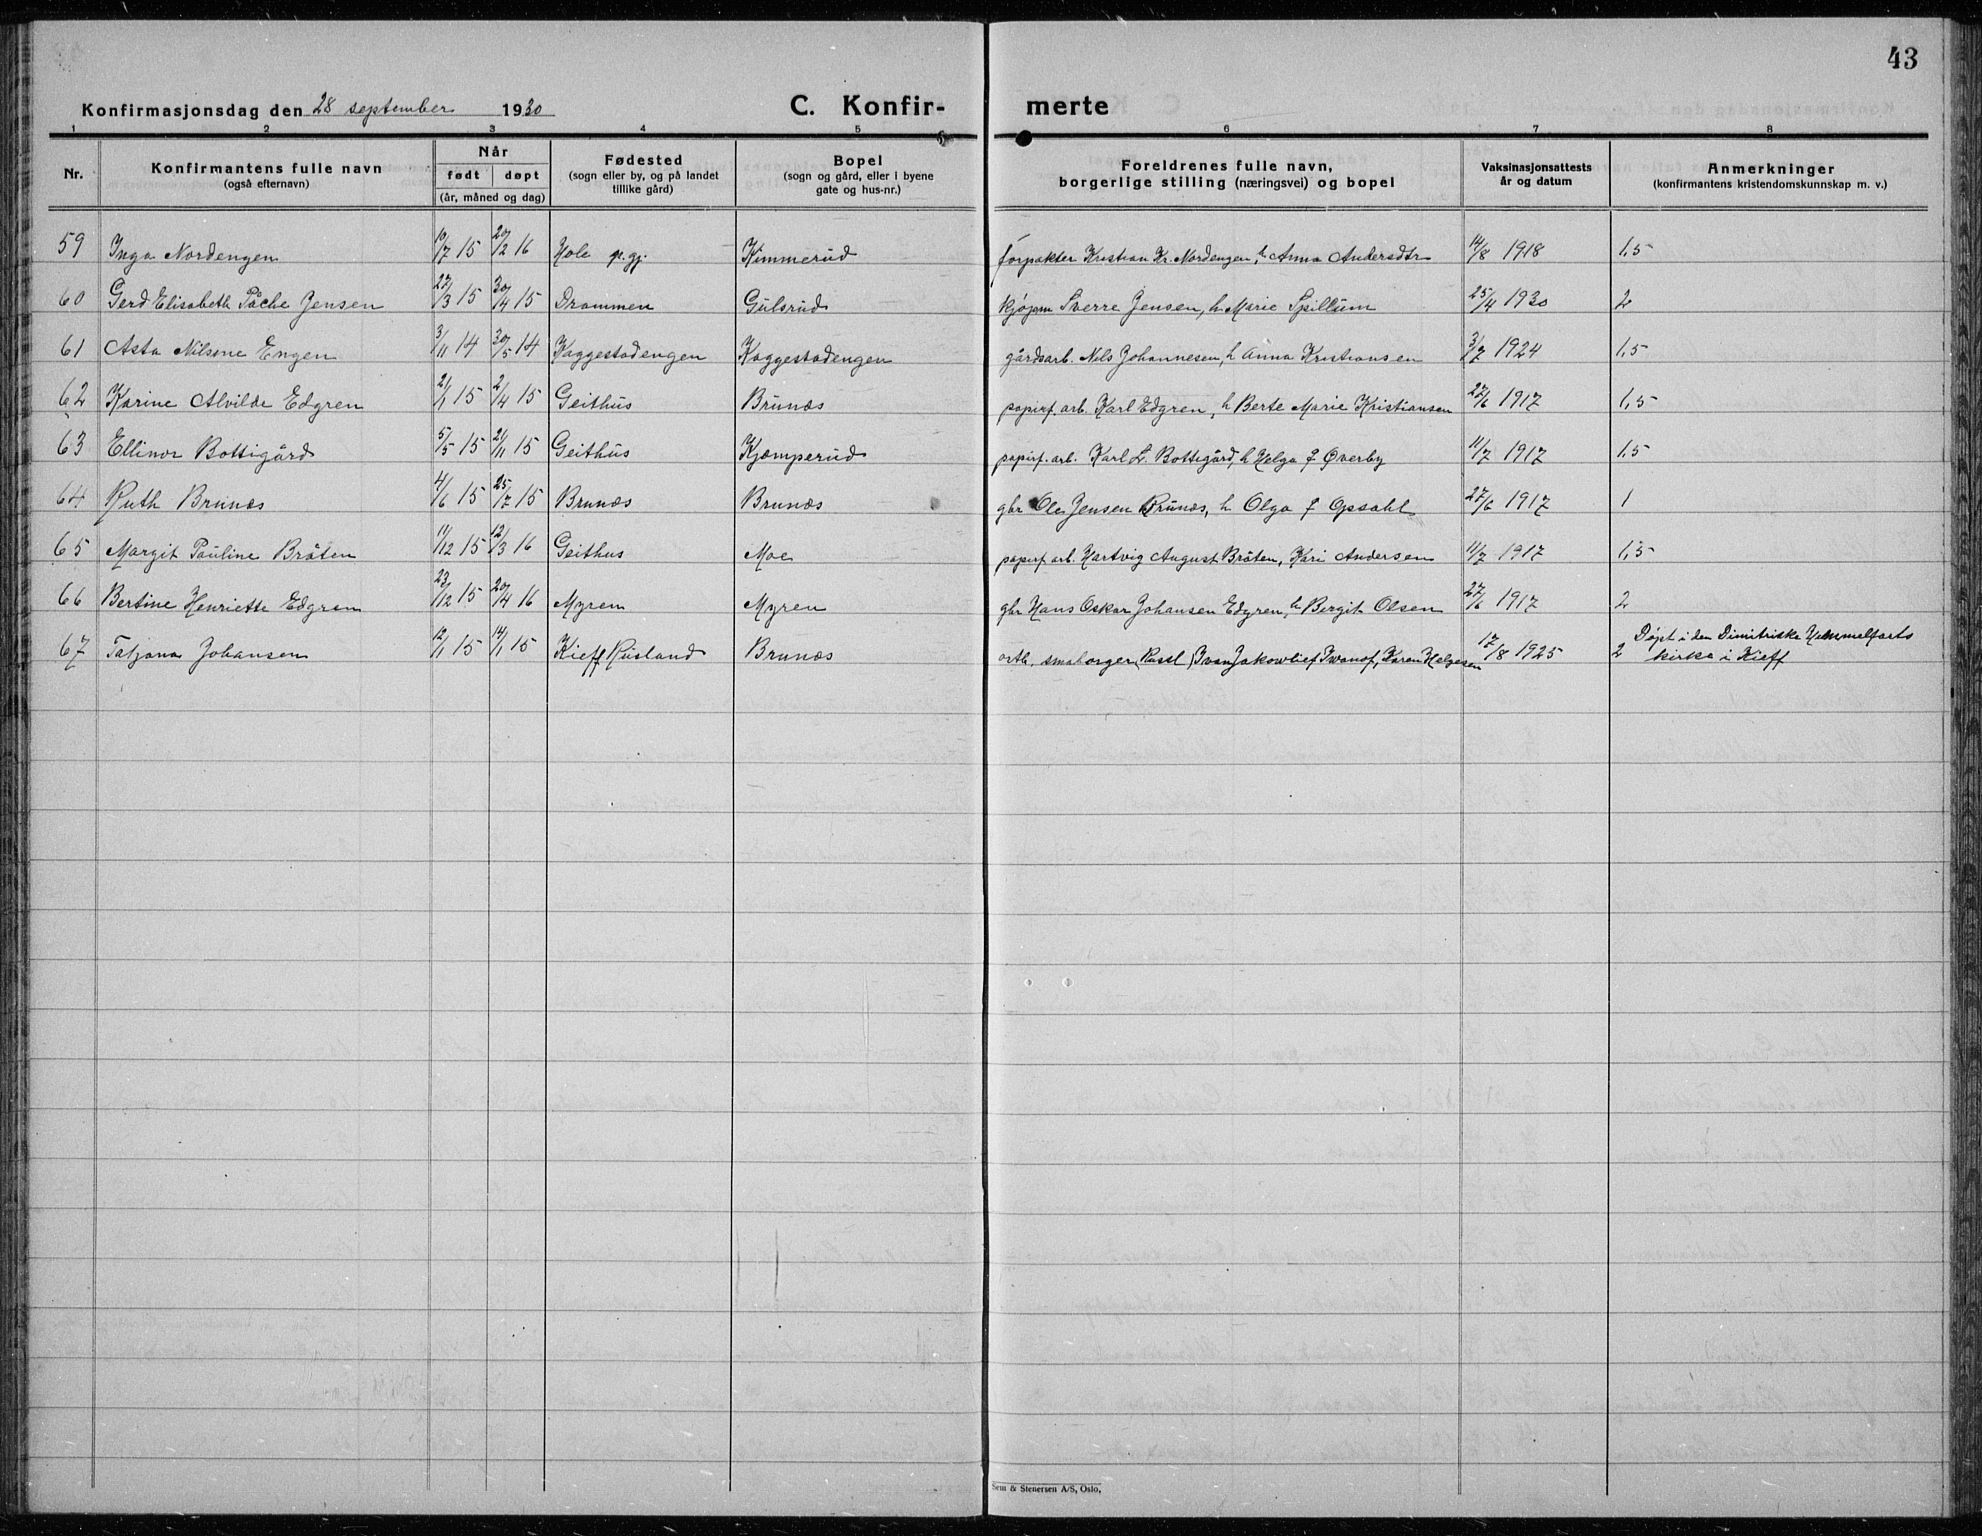 43
Konfirmasjonsdag den 28 september 1930 C. Konfir- merte
1 2 3 4 5 6 7 8
Nr. Konfirmantens fulle navn (også efternavn) Når født døpt (år, måned og dag) Fødested (sogn eller by, og på landet tillike gård) Bopel (sogn og gård, eller i byene gate og hus-nr.) Foreldrenes fulle navn, borgerlige stilling (næringsvei) og bopel Vaksinasjonsattests år og datum Anmerkninger (konfirmantens kristendomskunnskap m. v.)
59 Inga Nordengen 10/7 15 20/2 16 Hole p.gj. Kimmerud forpakter Kristian Kr. Nordengen, h. Anna Andersdtr 14/8 1918 1,5
60 Gerd Elisabeth Påche Jensen 27/3 15 30/4 15 Drammen Gulsrud kjøpm Sverre Jensen, h. Marie Spillum 25/4 1930 2
61 Asta Nilsine Engen 3/11 14 30/5 14 Kaggestadengen Kaggestadengen gårdsarb. Nils Johannesen, h Anna Kristiansen 3/7 1924 1,5
62 Karine Alvilde Edgren 21/1 15 2/4 15 Geithus Brunæs papirf. arb. Karl Edgren, h Berte Marie Kristiansen 27/6 1917 1,5
63 Ellinor Bottigård 5/5 15 21/11 15 Geithus Kjæmperud papirf. arb. Karl L. Bottegård, h Helga f Øverby 11/7 1917 1,5
64 Ruth Brunæs 4/6 15 25/7 15 Brunæs Brunæs gbr Ole Jensen Brunæs, h Olga f Opsahl 27/6 1917 1
65 Margit Pauline Bråten 11/12 15 12/3 16 Geithus Moe papirf. arb. Hartvig August Bråten, Kari Andersen 11/7 1917 1,5
66 Bertine Henriette Edgren 23/12 15 20/4 16 Myren Myren gbr Hans Oskar Johansen Edgren, h Bergit Olsen 27/6 1917 2
67 Tatjana Johansen 12/1 15 14/1 15 Kieff, Rusland Brunæs orth. smaborger (Russl) Ivan Jakowlief Iwanof, Karen Helgesen 17/8 1925 2 Døpt i den Dimitriske Himmelfarts
kirke i Kieff
Sem & Stenersen A/S, Oslo.